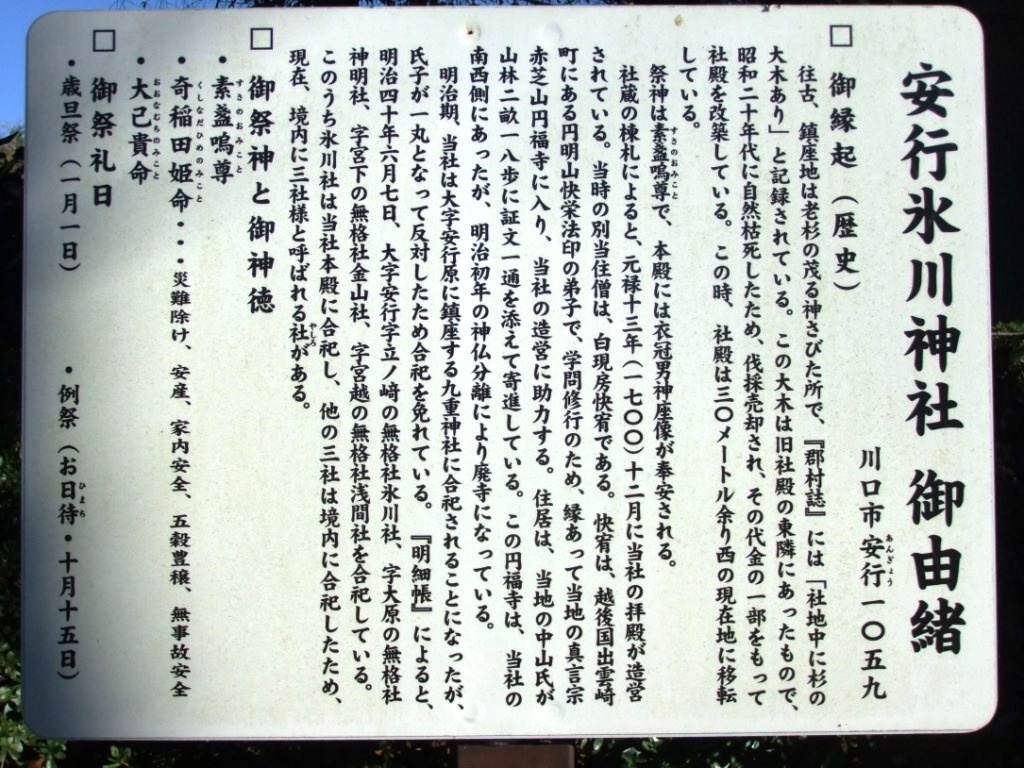 安行氷川神社 御由緒
川口市安行一〇五九
あんぎょう
□ 御縁起（歴史）
往古、鎮座地は老杉の茂る神さびた所で、『郡村誌』には「社地中に杉の
大木あり」と記録されている。この大木は旧社殿の東隣にあったもので、
昭和二十年代に自然枯死したため、伐採売却され、その代金の一部をもって
社殿を改築している。この時、社殿は三〇メートル余り西の現在地に移転
している。
祭神は素盞嗚尊で、本殿には衣冠男神座像が奉安される。
すさのおみこと
社蔵の棟札によると、元禄十三年（一七〇〇）十二月に当社の拝殿が造営
されている。当時の別当住僧は、白現房快宥である。快宥は、越後国出雲崎
町にある円明山快栄法印の弟子で、学問修行のため、縁あって当地の真言宗
赤芝山円福寺に入り、当社の造営に助力する。住居は、当地の中山氏が
山林二畝一八歩に証文一通を添えて寄進している。この円福寺は、当社の
南西側にあったが、明治初年の神仏分離により廃寺になっている。
明治期、当社は大字安行原に鎮座する九重神社に合祀されることになったが、
氏子が一丸となって反対したため合祀を免れている。『明細帳』によると、
明治四十年六月七日、大字安行字立ノ﨑の無格社氷川社、字大原の無格社
神明社、字宮下の無格社金山社、字宮越の無格社浅間社を合祀している。
このうち氷川社は当社本殿に合祀し、他の三社は境内に合祀したため、
現在、境内に三社様と呼ばれる社がある。
やしろ
□ 御祭神と御神徳
・素盞嗚尊
すさのおみこと
・奇稲田姫命・・・災難除け、安産、家内安全、五穀豊穣、無事故安全
くしなだひめのみこと
・大己貴命
おおなむちのみこと
□ 御祭礼日
・歳旦祭（一月一日） ・例祭（お日待・十月十五日）
ひまち